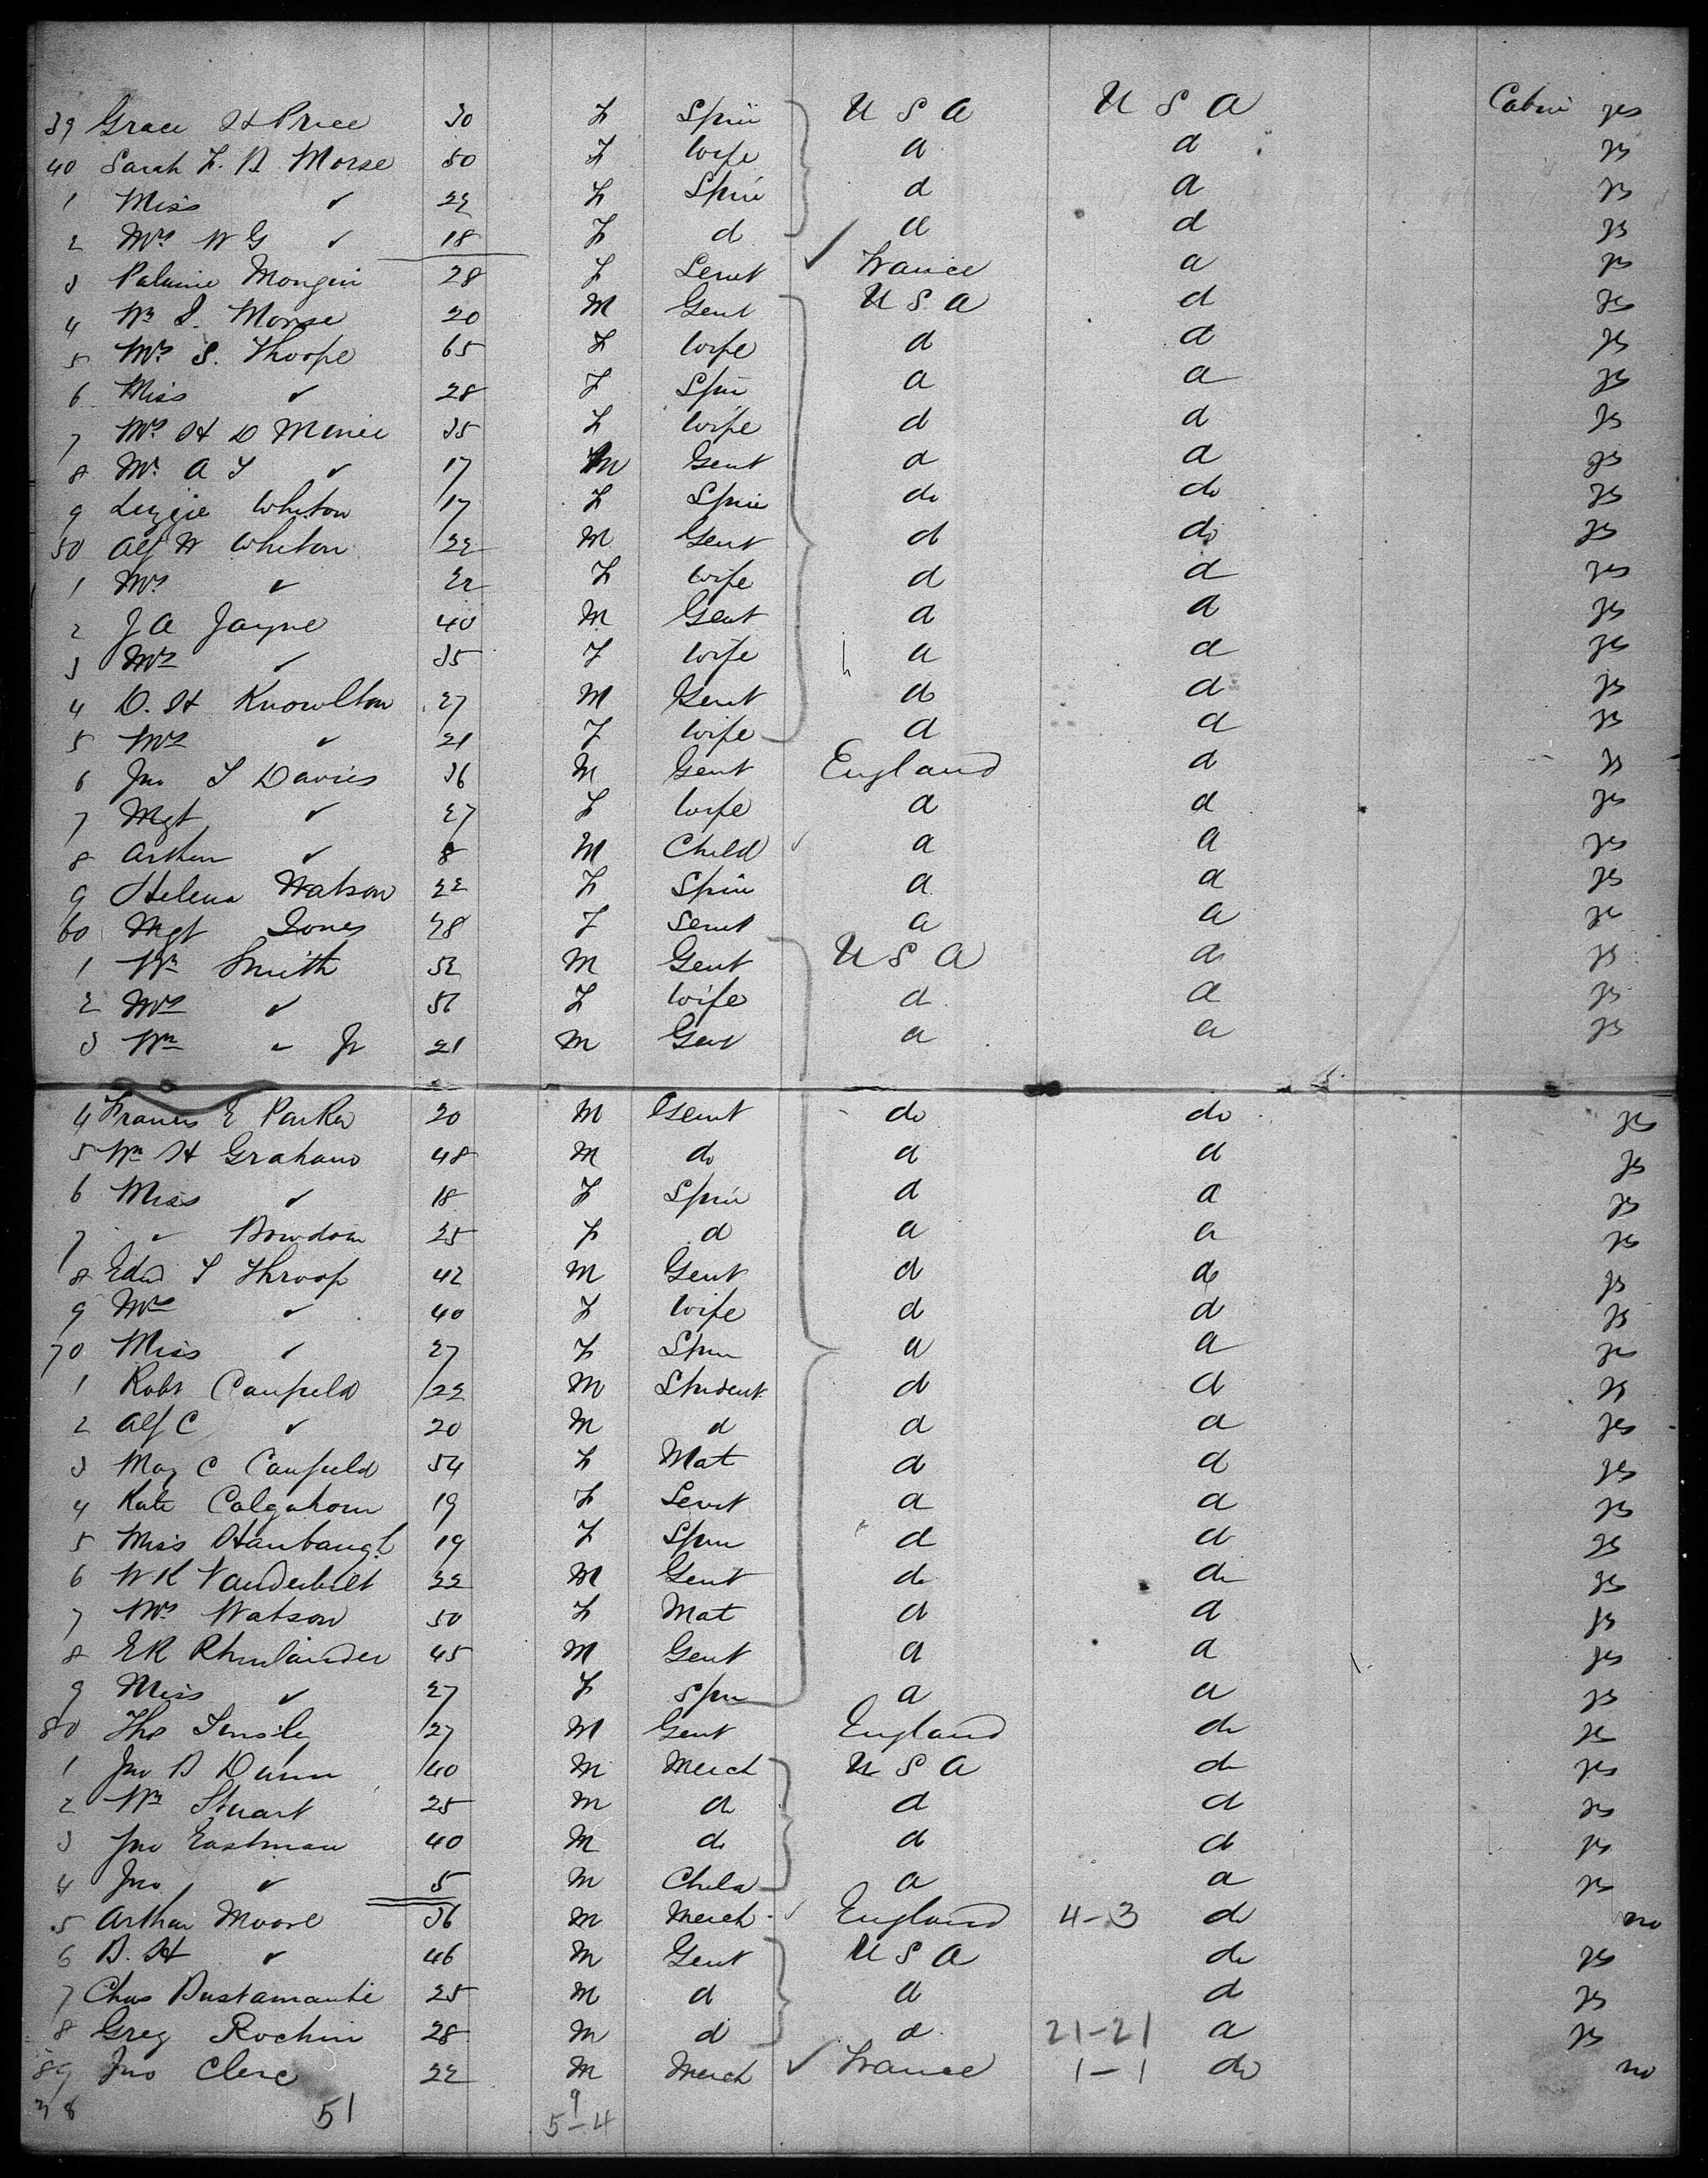 39 Grace H Price 30 F Spin U S A U S A Cabin yes
40 Sarah F. B Morse 50 F Wife d d yes
1 Miss " 22 F Spin d d yes
2 Mrs W G " 18 F d d d yes
3 Mongin 28 F Servt ✓ France d yes
4 Wm I. Morse 20 M Gent U S A d yes
5 Mrs S. Thorpe 65 F Wife d d yes
6 Miss " 28 F Spin d d yes
7 Mrs H D Minee 35 F Wife d d yes
8 Mr A T " 17 M Gent d d yes
9 Lizzie Whiton 17 F Spin do do yes
50 Alf W Whiton 22 M Gent d do yes
1 Mrs " 22 F Wife d d yes
2 J A Jayne 40 M Gent d d yes
3 Mrs " 35 F Wife d d yes
4 D. H Knowlton 27 M Gent do d yes
5 Mrs " 21 F Wife d d yes
6 Jno T Davies 36 M Gent England d yes
7 Mgt " 27 F Wife d d yes
8 Arthur " 8 M Child ✓ d d yes
9 Helena Watson 22 F Spin d d yes
60 Mgt Jones 28 F Servt d d yes
1 Wm Smith 52 M Gent U S A d yes
2 Mrs " 56 F Wife d d yes
3 Wm " Jr 21 M Gent d d yes
4 Francis E Parker 20 M Gent do do yes
5 Wm H Graham 48 M do d d yes
6 Miss " 18 F Spin d d yes
7 " Bowdoin 25 F d d d yes
8 Edwd T Throop 42 M Gent d do yes
9 Mrs " 40 F Wife d d yes
70 Miss " 27 F Spin d d yes
1 Robt Canfield 22 M Student d d yes
2 Alf C " 20 M d d d yes
3 May C Canfield 54 F Mat d d yes
4 Kate Colgahoun 19 F Servt d d yes
5 Miss Hanbaugh 19 F Spin d d yes
6 W K Vanderbilt 22 M Gent do do yes
7 Mrs Watson 50 F Mat d d yes
8 E R Rhinlander 45 M Gent d d yes
9 Miss " 27 F Spin d d yes
80 Thos Tinsley 27 M Gent England do yes
1 Jno B Dunn 40 M Merch U S A do yes
2 Wm Stuart 25 M do d d yes
3 Jno Eastman 40 M do d d yes
4 Jno " 5 M Child d d yes
5 Arthur Moore 36 M Merch ✓ England 4-3 do no
6 B. H " 46 M Gent U S A do yes
7 Chas Bustamante 25 M d d d yes
8 Greg Rochin 28 M d d 21-21 d yes
89 Jno Clerc 22 M Merch ✓ France 1-1 do no
38 51 9
5-4